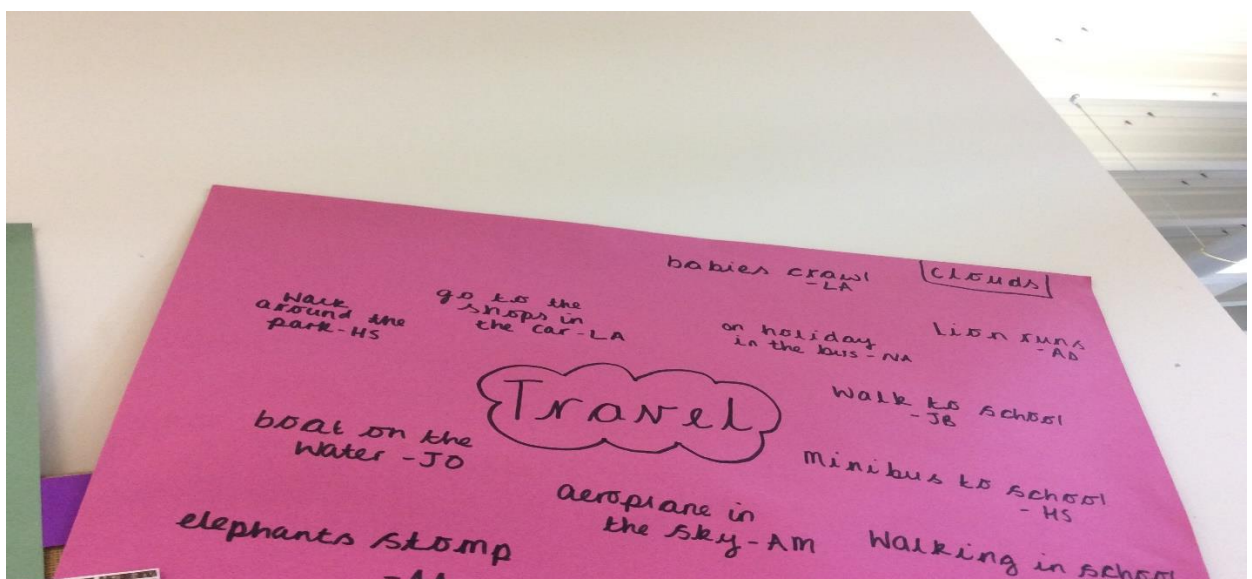 babies crawl
-LA
clouds
walk
around the
park-HS
go to the
shops in
the car-LA
on holiday
in the bus-NA
lion runs
-AD
Travel
walk to school
-JB
boat on the
water-JO
minibus to school
-HS
aeroplane in
the sky-AM
elephants stomp
walking in school